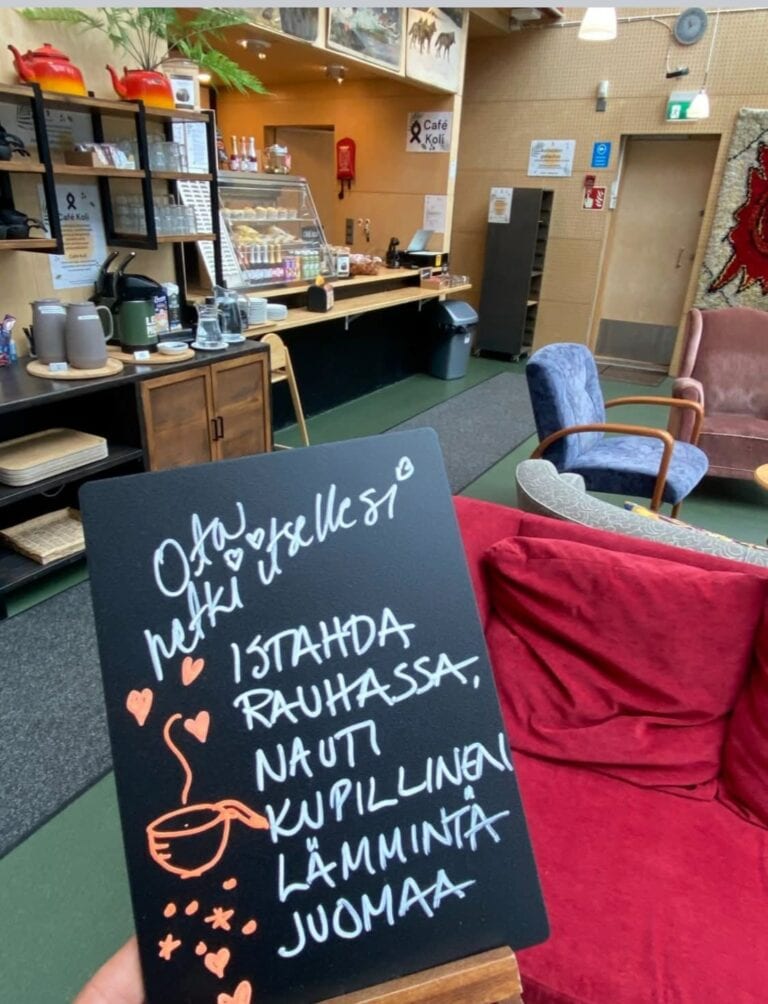 Café
Koli
Café Koli
Ota
hetki itsellesi
ISTAHDA
RAUHASSA,
NAUTI
KUPILLINEN
LÄMMINTÄ
JUOMAA